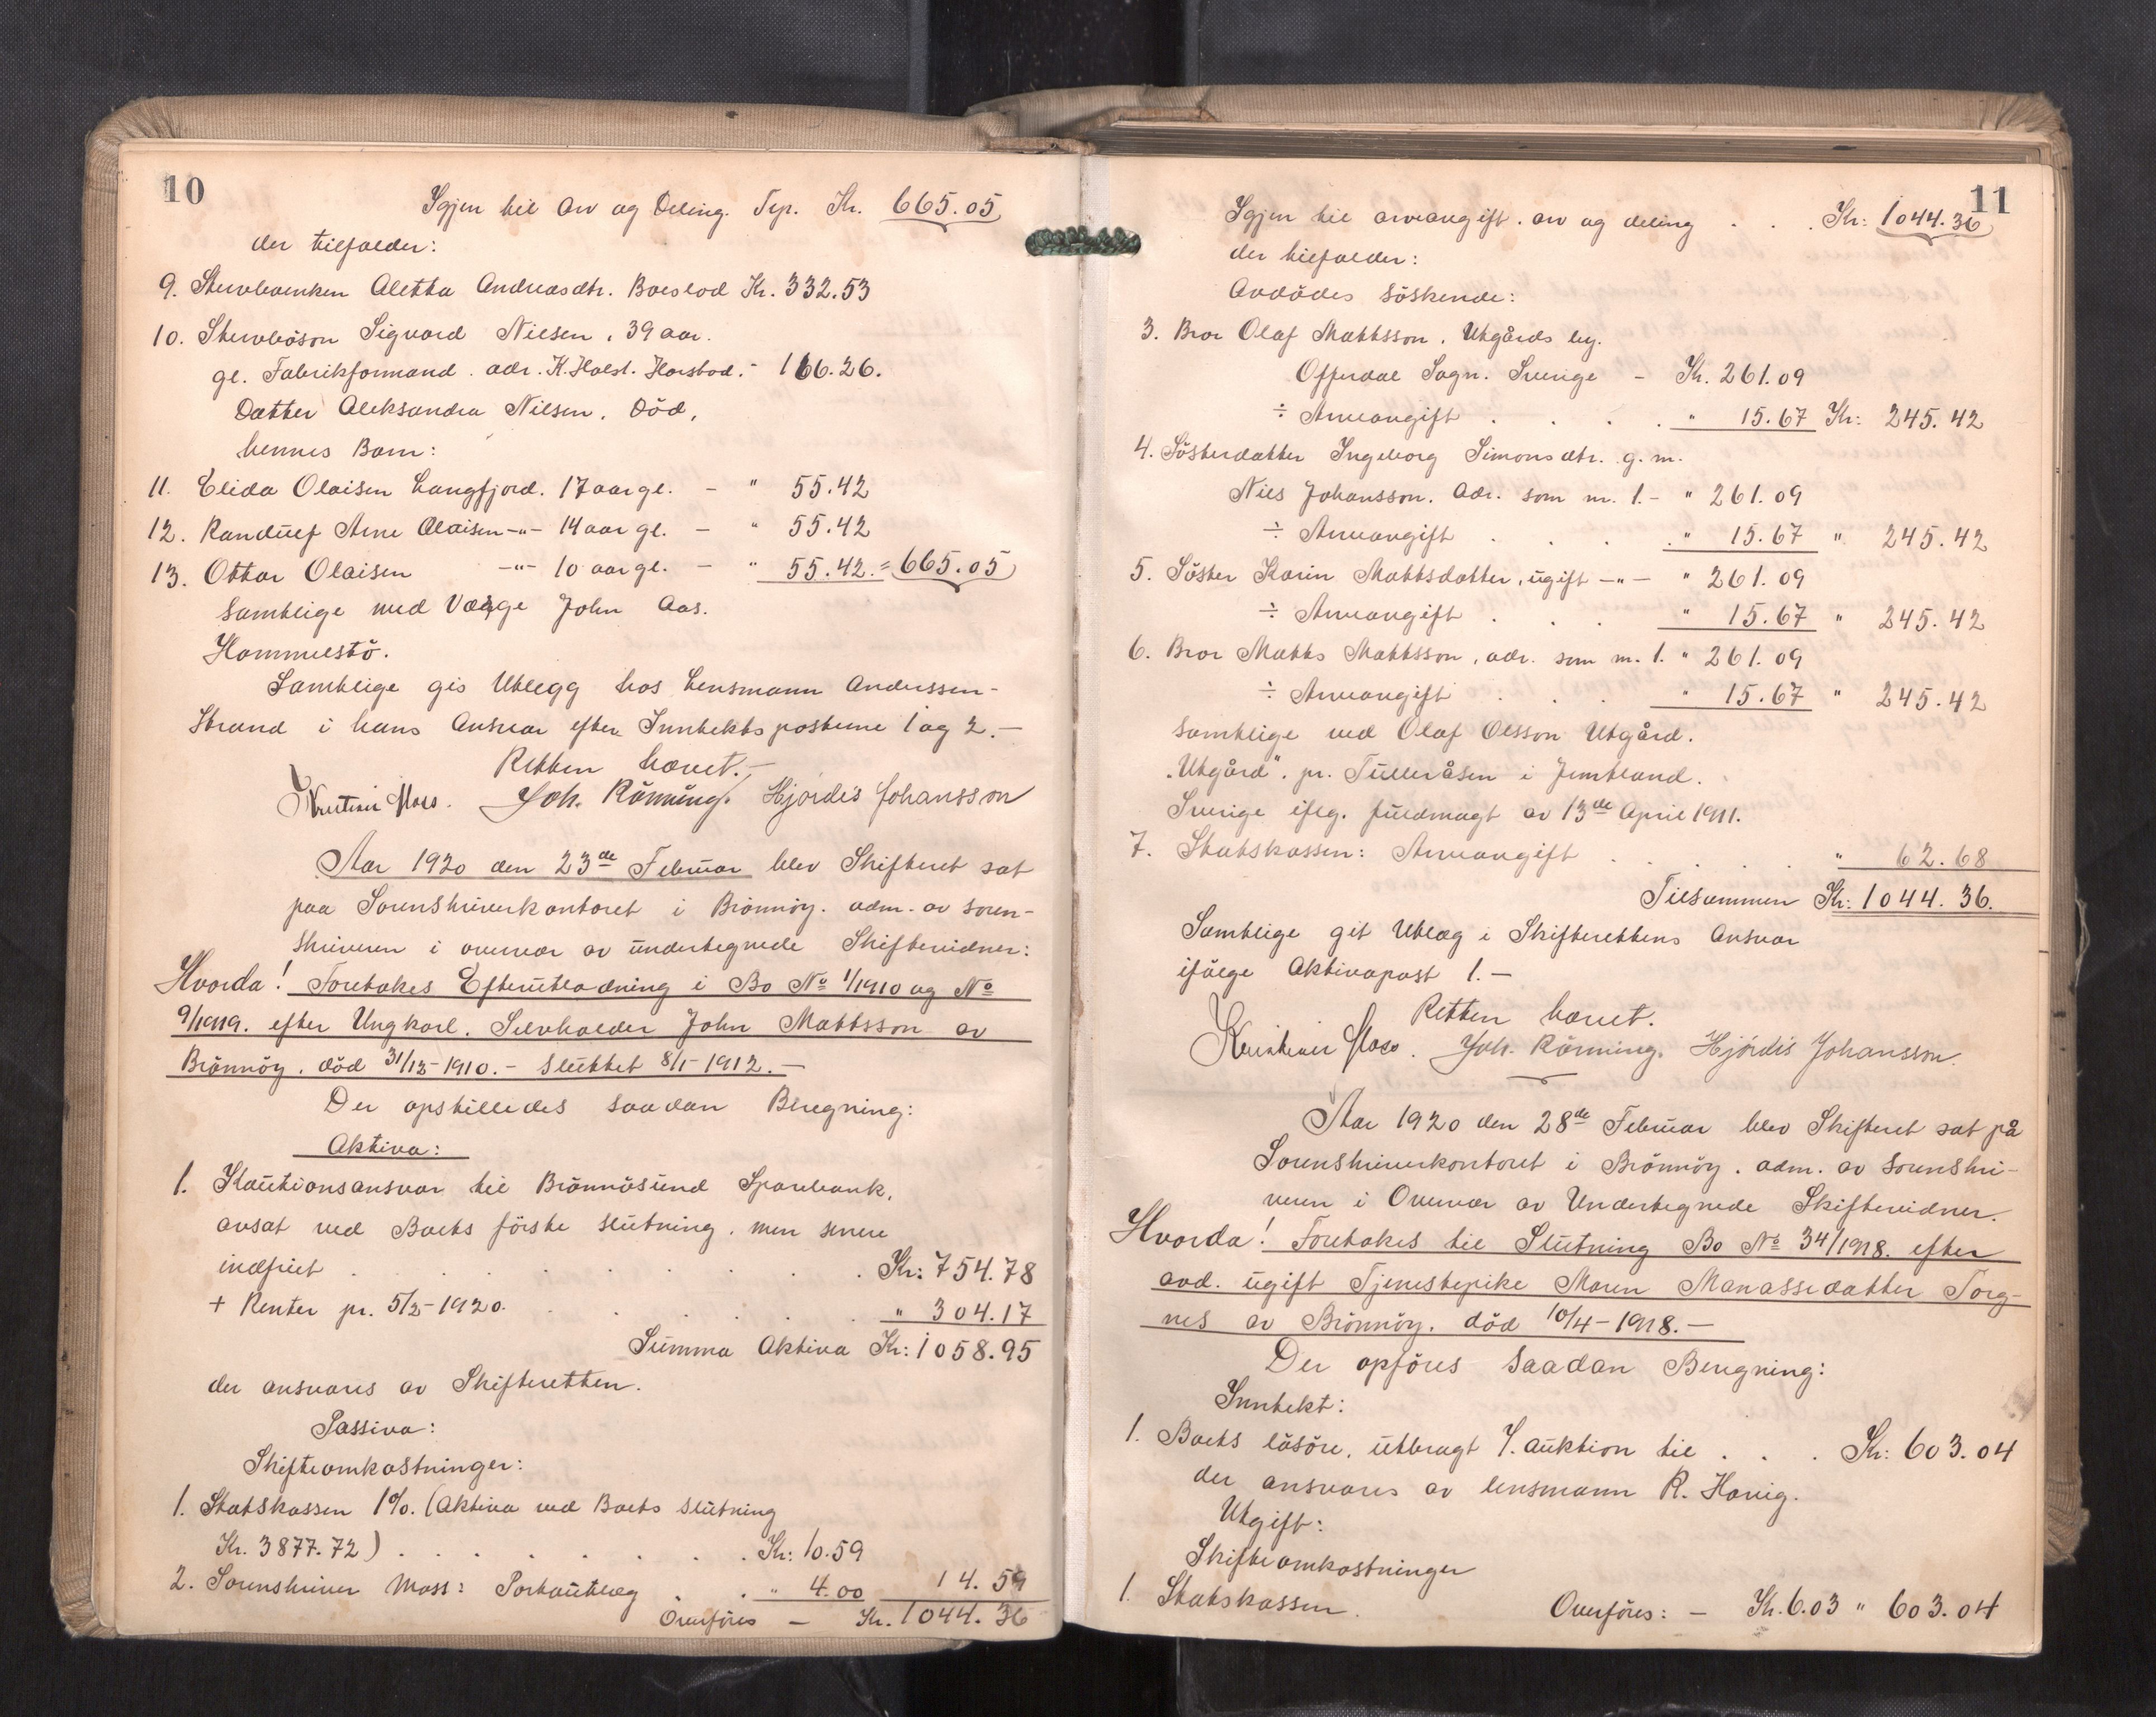 10
Igjen til Arv og Deling. Tep. Kr. 665.05
der tilfalder:
9. Stervboenken Aletta Andreasdtr. Boeslod Kr. 332.53
10. Stervbösön Sigvard Nilsen, 39 aar
gl. Fabrikformand. adr. K. Holst. Harstad. - 166.26.
Datter Aleksandra Nilsen, Död,
hennes Barn:
11. Elida Olaisen Langfjord. 17 aar gl. - " 55.42
12. Randulf Arne Olaisen -"- 14 aar gl. - " 55.42
13. Ottar Olaisen -"- 10 aar gl. - " 55.42. = 665.05
samtlige med Værge John Aas.
Hommelstö.
Samtlige gis Utlegg hos Lensmann Anderssen-
Strand i hans Ansvar efter Inntektsposterne 1 og 2.-
Retten hævet.-
Kristian Moss. Joh. Rönning. Hjördis Johansson
Aar 1920 den 23de Februar blev Skifteret sat
paa Sorenskriverkontoret i Brönnöy. adm. av soren-
skriveren i overvær av undertegnede Skiftevidner:
Hvorda! Foretokes Efterutlodning i Bo No 1/1910 og No
9/1919. efter Ungkarl. Selvholder John Mattsson av
Brönnöy. död 31/12-1910.- Sluttet 8/1-1912.-
Der opstilledes saadan Beregning:
Aktiva:
1. Kautionsansvar til Brönnösund Sparebank,
avsat ved Boets förste slutning. men senere
indfriet . . . . . . . Kr: 754.78
+ Renter pr. 5/2-1920. . . . . " 304.17
Summa Aktiva Kr: 1058.95
der ansvares av Skifteretten.
Passiva:
Skifteomkostninger:
1. Statskassen 1%. (Aktiva ved Boets Slutning
Kr. 3877.72) . . . . . . . Kr: 10.59
2. Sorenskriver Moss: Portoutlæg . . " 4.00 14.59
Overföres - Kr. 1044.36
11
Igjen til arveavgift. arv og deling . . . Kr: 1044.36
der tilfalder:
Avdödes Söskende:
3. Bror Olaf Mattsson. Utgårds by.
Offerdal Sogn. Sverige - Kr. 261.09
÷ Arveavgift . . . . " 15.67 Kr: 245.42
4. Sösterdatter Ingeborg Simonsdtr. g. m.
Nils Johansson. Adr. som nr. 1.- " 261.09
÷ Arveavgift . . . . " 15.67 " 245.42
5. Söster Karin Mattsdatter, ugift -"- " 261.09
÷ Arveavgift . . . " 15.67 " 245.42
6. Bror Matts Mattsson, adr. som nr. 1. " 261.09
÷ Arveavgift . . . " 15.67 " 245.42
samtlige ved Olof Olsson Utgård.
"Utgård". pr. Tulleråsen i Jemtland.
Sverige iflg. fuldmagt av 13de April 1911.
7. Statskassen: Arveavgift . . . . . " 62.68
Tilsammen Kr: 1044.36.
Samtlige git Utlæg i Skifterettens Ansvar
ifölge Aktivapost 1.-
Retten hævet.
Kristian Moss. Joh. Rönning. Hjördis Johansson.
Aar 1920 den 28de Februar blev Skifteret sat på
Sorenskriverkontoret i Brönnöy. adm. av Sorenskri-
veren i Overvær av Undertegnede Skiftevidner.
Hvorda! Foretokes til Slutning Bo No 34/1918. efter
avd. ugift Tjenestepike Maren Manassedatter Torg-
nes av Brönnöy. död 10/4-1918.-
Der opföres saadan Beregning:
Inntekt:
1. Boets lösöre, utbragt v. auktion til . . . Kr: 603.04
der ansvares av lensmann R. Havig.
Utgift:
Skifteomkostninger
1. Statskassen. Overföres: - Kr. 6.03 " 603.04